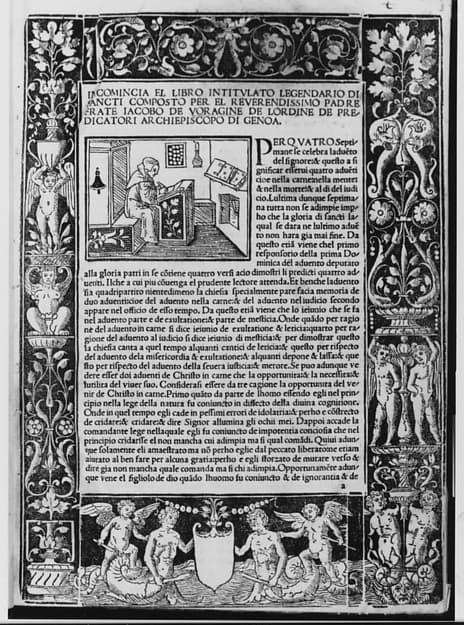 INCOMINCIA EL LIBRO INTITVLATO LEGENDARIO DI
SANCTI COMPOSTO PER EL REVERENDISSIMO PADRE
FRATE IACOBO DE VORAGINE DE LORDINE DE PRE-
DICATORI ARCHIEPISCOPO DI GENOA.
PER QVATRO Septi-
mane se celebra laduẽto
del signore: & questo a si
gnificar esserui quatro aduẽti
cioe nella carne: nella mente:
& nella morte: & al di del iudi
cio. Lultima dunque septima-
na tutta non se adimpie imp-
ho che la gloria di sancti la-
qual se dara ne lultimo aduẽ
to non hara gia mai fine. Da
questo etiã viene chel primo
responsorio della prima Do
minica del aduento deputato
alla gloria patri in se cõtiene quattro versi acio dimostri li predicti quatro ad-
uenti. Ilche a cui piu cõuenga el prudente lectore attenda. Et benche laduento
sia quadripartito nientedimeno la chiesa specialmente pare facia memoria de
duo aduenti: cioe del aduento nella carne: & del aduento nel iudicio secondo
appare nel officio de esso tempo. Da questo etiã viene che lo ieiunio che se fa
nel aduento parte e de exultatione: & parte de mesticia. Onde quãdo per ragio
ne del aduento in carne si dice ieiunio de exultatione & leticia: quarto per ra-
gione del aduento al iudicio si dice ieiunio di mesticia: & per dimostrar questo
la chiesa canta a quel tempo alquanti cantici de leticia: & questo per rispecto
del aduento dela misericordia & exultatione: & alquanti depone & lassa: & que
sto per rispecto del aduento della seuera iusticia: & merore. Se puo adunque ve
dere esser doi aduenti de Christo in carne che la opportunita: & la necessita: &
lutilita del viuer suo. Considerasi essere da tre cagione la opportunita del ve-
nir de Christo in carne. Primo quãto da parte de lhomo essendo egli nel prin-
cipio nella lege della natura fu conuincto in diffecto della diuina cognitione.
Onde in quel tempo egli cade in pessimi errori de idolatria: & perho e cõstrecto
de cridare: & cridare: & dire Signor allumina gli ochi mei. Dappoi accade la
comandante lege nellaquale egli fu conuincto de impotentia conciosia che nel
principio cridasse el non mancha cui adimpia ma si qual comãdi. Quiui adun-
que solamente eli amaestrato ma nõ perho eglie dal peccato liberato: ne etiam
aiutato al ben fare per alcuna gratia: perho e egli sforzato de mutare verso &
dire gia non mancha quale comanda ma si chi adimpia. Opportunamẽte adun-
que vene el figliolo de dio quãdo lhuomo fu conuincto & de ignorantia & de
a